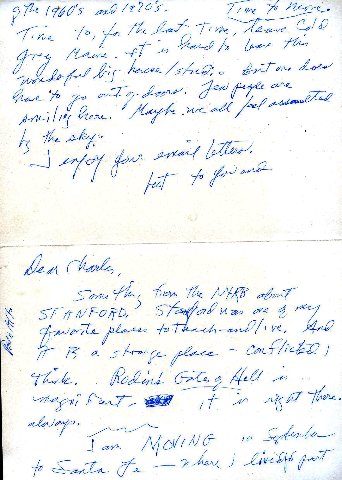 of the 1960's and 1970's. Time to move.
Time to, for the last time, leave Cold
Grey Maine. It is hard to leave this
wonderful big house/studio. But one does
have to go out of doors. Few people are
smiling here. Maybe we all feel assaulted
by the sky.
I enjoy your email letters.
to you and
Dear Charles,
Something from the NYRB about
STANFORD. Stanford was one of my
favorite places to teach and live. And
it is a strange place - conflicted I
think. Rodin's Gates of Hell is
magnificent. it is right there.
always.
I am MOVING in September
to Santa Fe - where I lived part